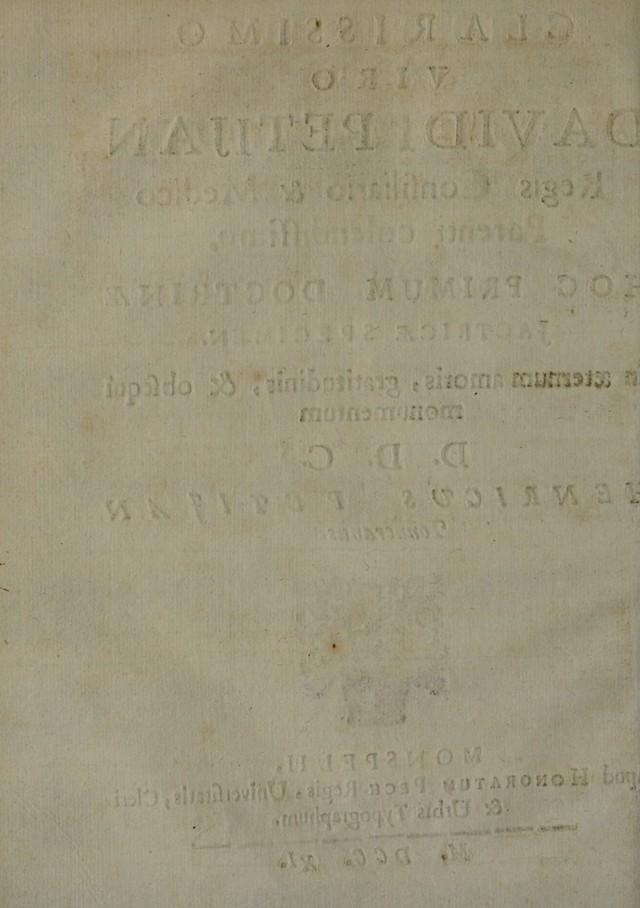 CLARISSIMO
VIRO
DAVIDI PETIJAN
Regis Consiliario & Medico
Parenti colendissimo,
HOC PRIMUM DOCTRINÆ
JACTRICÆ SPECIMEN
æternum amoris, gratitudinis, & obsequi
monumentum
D. D. C.
HENRICUS PETIJAN
MONSPELII,
Apud HONORATUM PECH Regis, Universitatis, Cleri
& Urbis Typographum.
M. DCC. XI.